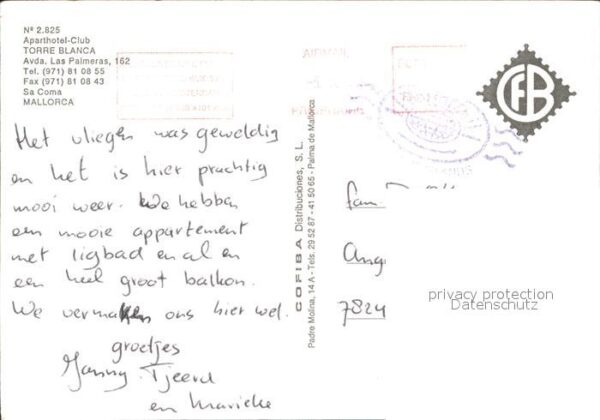 Nº 2.825
Aparthotel-Club
TORRE BLANCA
Avda. Las Palmeras, 162
Tel. (971) 81 08 55
Fax (971) 81 08 43
Sa Coma
MALLORCA
Het vliegen was geweldig
en het is hier prachtig
mooi weer. We hebben
een mooie appartement
met ligbad en al en
een heel groot balkon.
We vermaken ons hier wel.
groetjes
Janny Tjeerd
en Marieke
COFIBA Distribuciones, S.L.
Padre Molina, 14 A - Tels. 29 52 87 - 41 50 65 - Palma de Mallorca
AIRMAIL
CFB
fam
Ang
7824
privacy protection
Datenschutz